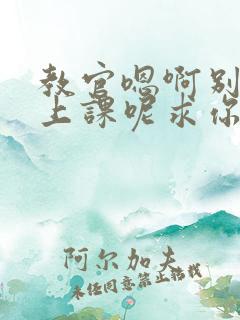 教官嗯啊别
上课呢求你
阿尔加夫
未经同意禁止转载